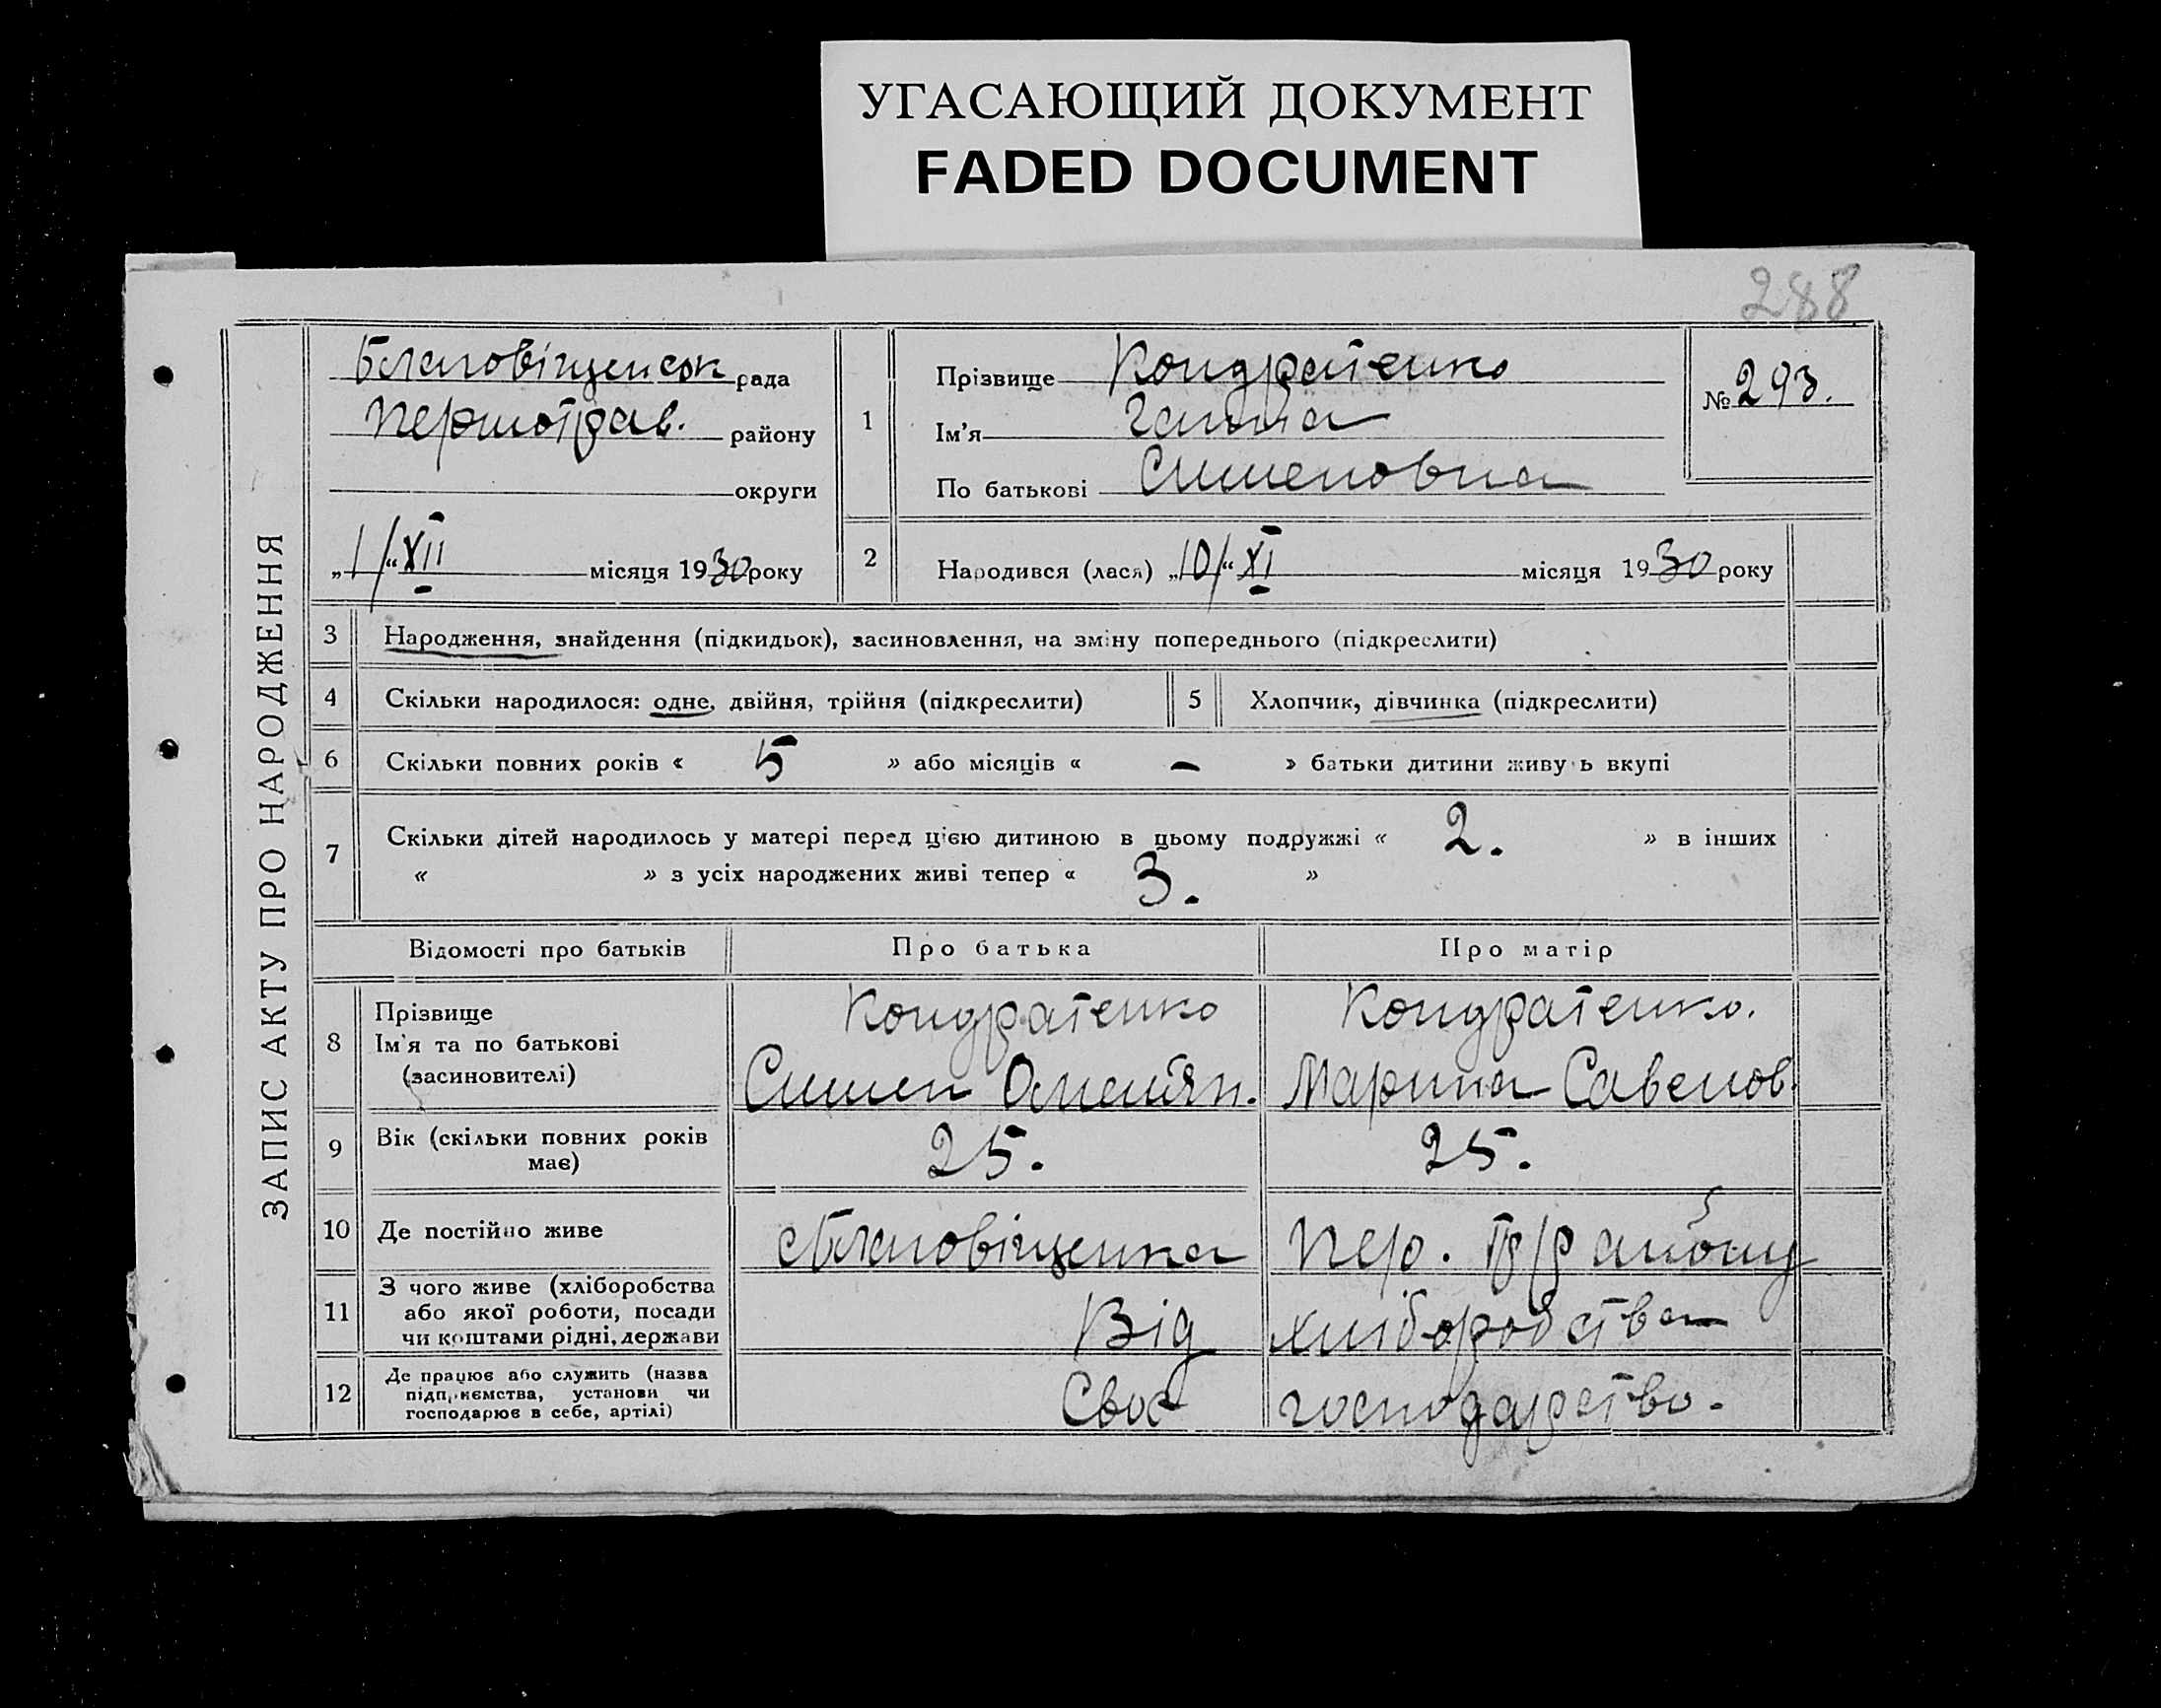 УГАСАЮЩИЙ ДОКУМЕНТ
FADED DOCUMENT
288
ЗАПИС АКТУ ПРО НАРОДЖЕННЯ
Благовіщенськ рада
Першотрав. району
округи
„1/“ XII місяця 1930 року
1
Прізвище Кондратенко
Ім'я Ганна
По батькові Сименовна
№ 293.
2
Народився (лася) „10/“ XI місяця 1930 року
3 Народження, знайдення (підкидьок), засиновлення, на зміну попереднього (підкреслити)
4 Скільки народилося: одне, двійня, трійня (підкреслити)
5 Хлопчик, дівчинка (підкреслити)
6 Скільки повних років « 5 » або місяців « – » батьки дитини живуь вкупі
7 Скільки дітей народилось у матері перед цією дитиною в цьому подружжі « 2. » в інших
« » з усіх народжених живі тепер « 3. »
Відомості про батьків Про батька Про матір
8 Прізвище Кондратенко Кондратенко.
Ім'я та по батькові
(засиновителі) Симен Омелян. Марина Савенов.
9 Вік (скільки повних років
має) 25. 25.
10 Де постійно живе Благовіщенка Пер. Тр району
11 З чого живе (хліборобства
або якої роботи, посади
чи коштами рідні, держави Від хліборобства
12 Де працює або служить (назва
підприємства, установи чи
господарює в себе, артілі) Своє господарство.